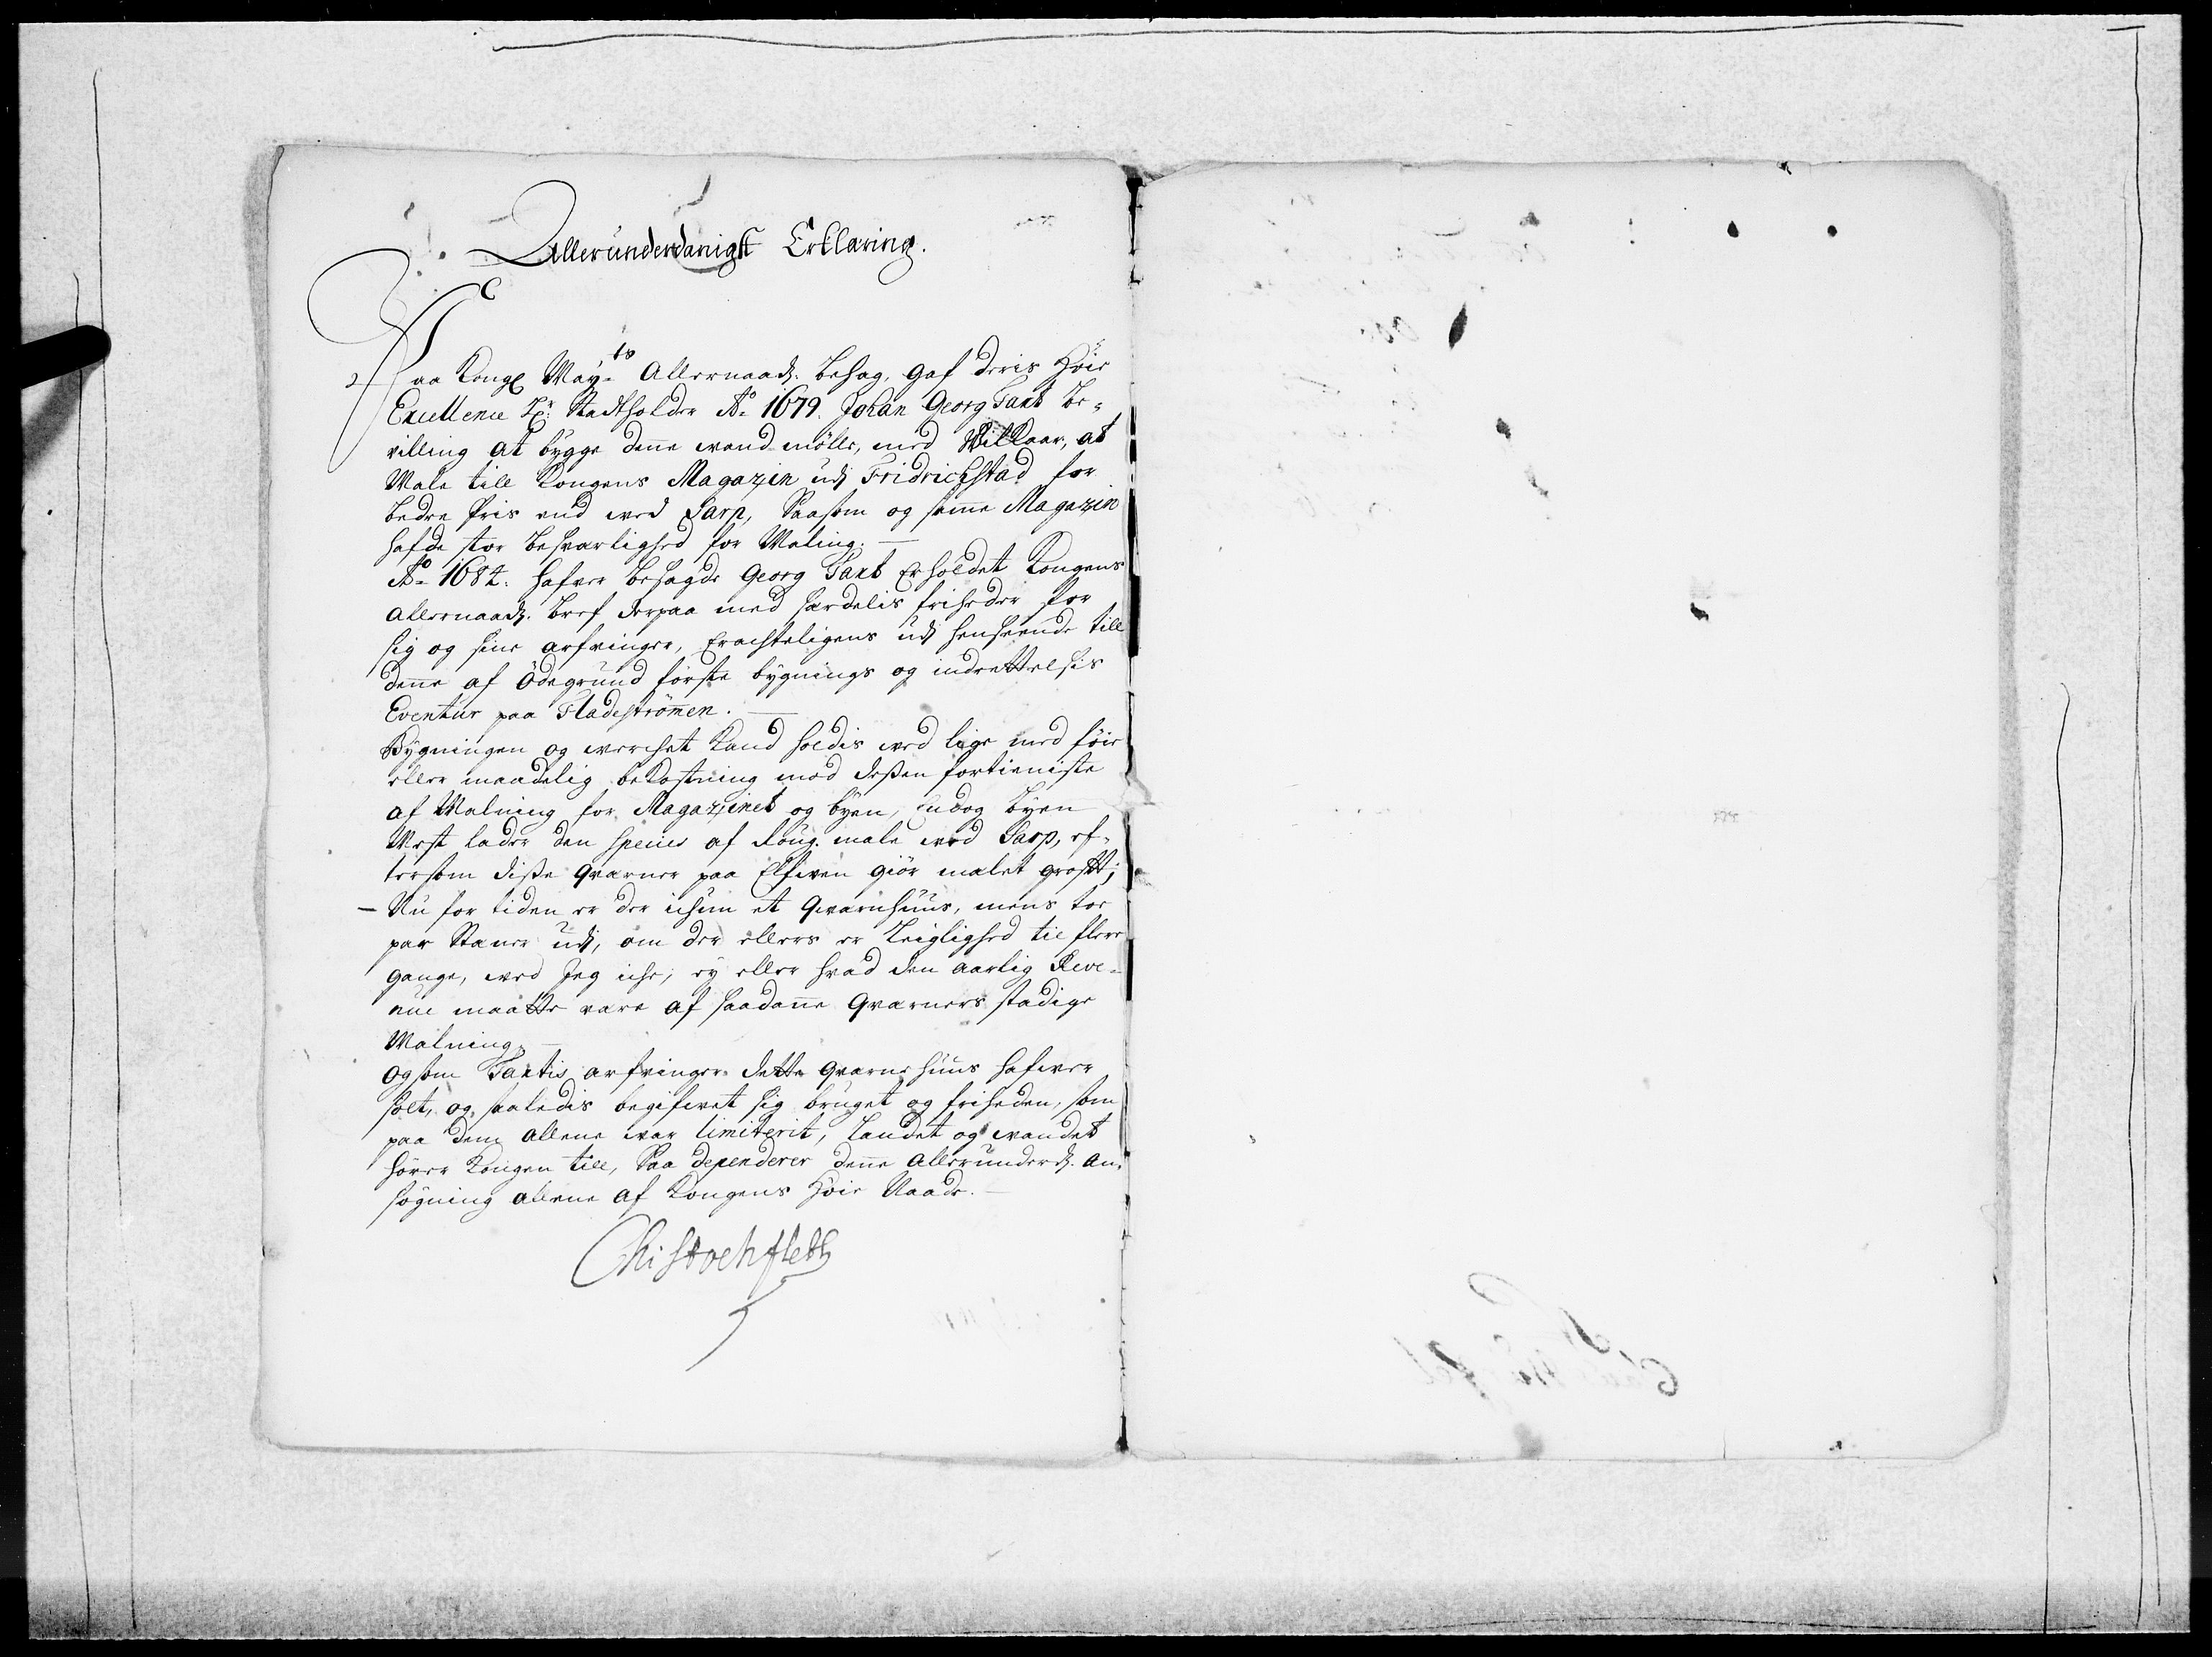 Allerunderdanigst Erklæring.
Paa Kongl May.ts Allernaad. behag, gaf deris Høie
Excellence Hr. Stadtholder Ao. 1679. Johan Georg Taxt Be-
villing at bygge denne vand mölle, med Vilkaar, at
Male till Kongens Magazin udj Fridrichstad for
bedre Pris end ved Sarp, Saasom og samme Magazin
hafde stor besværlighed for Maling.
Ao. 1684. hafver besagde Georg Taxt Erholdet Kongens
allernaad. bref derpaa med særdelis friheder for
sig og sine arfvinger, Eracteligens udj henseende till
denne af Ödegrund första bygnings og indrettelsis
Eventür paa Fladeströmmen.
Bygningen og verchet kand holdis ved lige med föie
eller maadelig bekostning mod dessen fortieniste
af Malning for Magazinet og byen, endog byen
Mest lader den species af Roug. male ved Sarp, ef-
tersom disse qvarner paa Elfven giör malet groft;
- Nu for tiden er der ichun et Qvarnhuus, mens toe
par Stener udj, om der ellers er Leiglighed til flere
gange, ved Jeg iche; ey eller hvad den aarlig Reve-
nue maatte være af saadanne Qvarners stadige
Malning.
og som Taxtis arfvinger dette qvarne huus hafver
solt, og saaledis begifvet sig bruget og friheden, som
paa dem allene var limiterit, Landet og vandet
hörer Kongen till, Saa dependerer denne allerunderd. An-
sögning allene af Kongens Höie Naade.
Chr Stochfleth